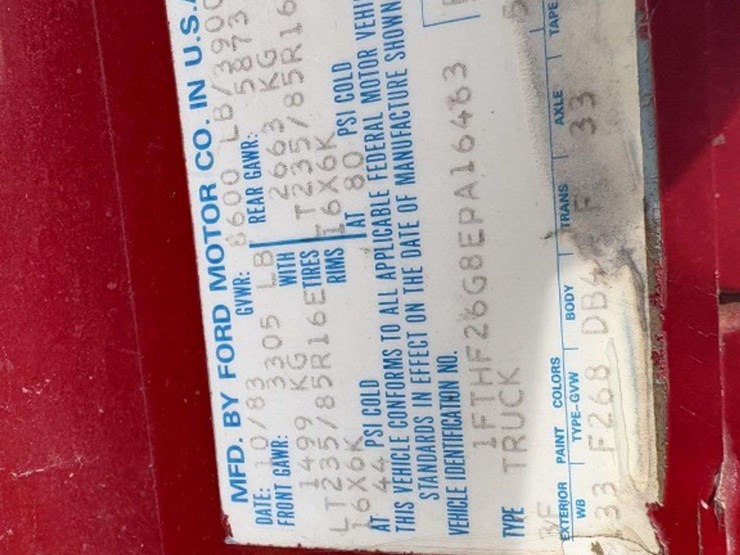 MFD. BY FORD MOTOR CO. IN U.S.A
DATE: 10/83 GVWR: 8600 LB/3900
FRONT GAWR: 3305 LB REAR GAWR: 5873
1499 KG WITH 2663 KG
LT235/85R16E TIRES LT235/85R16
16X6K RIMS 16X6K
AT 44 PSI COLD AT 80 PSI COLD
THIS VEHICLE CONFORMS TO ALL APPLICABLE FEDERAL MOTOR VEHI
STANDARDS IN EFFECT ON THE DATE OF MANUFACTURE SHOWN
VEHICLE IDENTIFICATION NO.
1FTHF26G8EPA16463
TYPE TRUCK
EXTERIOR PAINT COLORS
WB TYPE-GVW BODY TRANS AXLE TAPE
133 F268 F 33